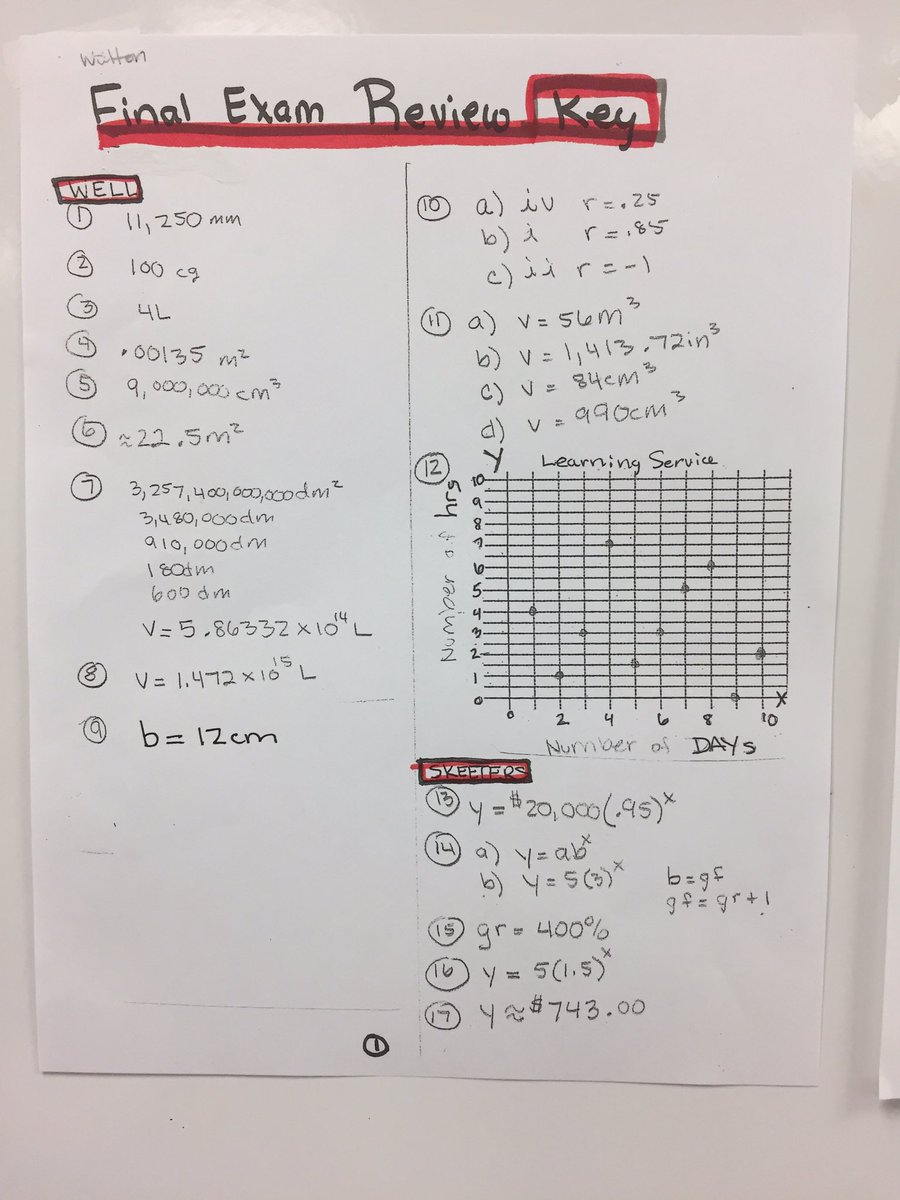 Final Exam Review Key
WELL
① 11,250 mm
② 100 cg
③ 4L
④ .00135 m²
⑤ 9,000,000 cm³
⑥ ≈22.5m²
⑦ 3,257,400,000,000dm²
3,480,000dm
910,000dm
180dm
600dm
V=5.86332×10¹⁴L
⑧ V=1.472×10¹⁵L
⑨ b=12cm
①
⑩ a) iv r=.25
b) i r=.85
c) ii r=-1
⑪ a) V=56m³
b) V=1,413.72in³
c) V=84cm³
d) V=990cm³
⑫ Y Learning Service
Number of hrs
10
9
8
7
6
5
4
3
2
1
0
X
0 2 4 6 8 10
Number of DAYS
SKEETERS
⑬ y=$20,000(.95)ˣ
⑭ a) y=abˣ
b) y=5(3)ˣ b=gf
gf=gr+1
⑮ gr=400%
⑯ y=5(1.5)ˣ
⑰ y≈$743.00